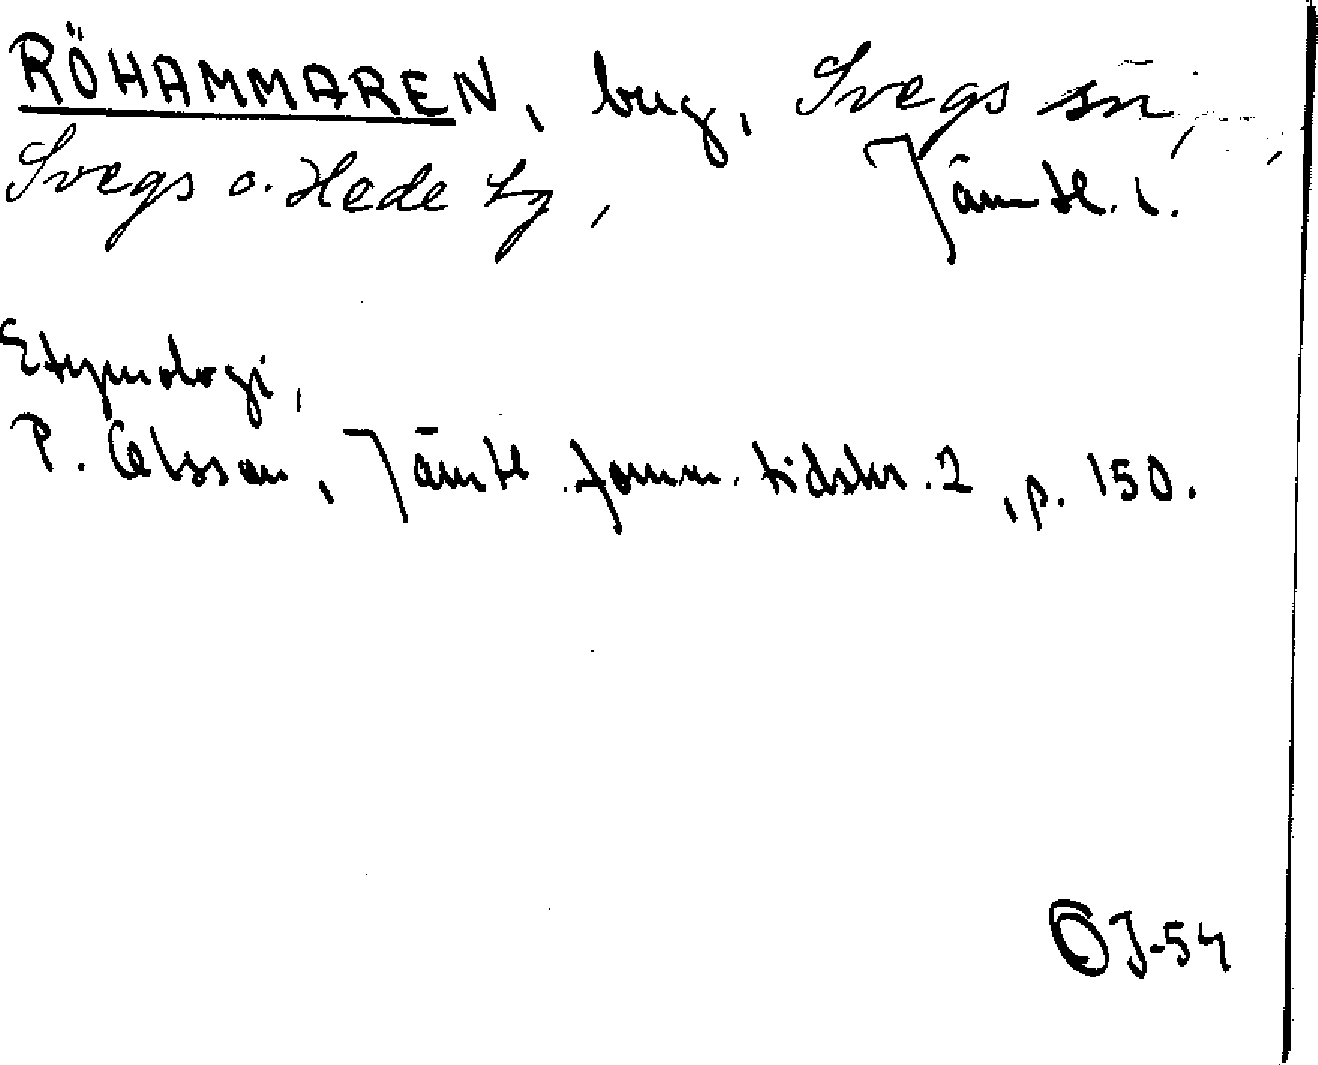 RÖHAMMAREN, beng, Svegs sn,
Svegs o. Hede tg, Jämtl. l.
Etymologi,
P. Olsson, Jämtl. fornm. tidskr. 2, p. 150.
OJ-54